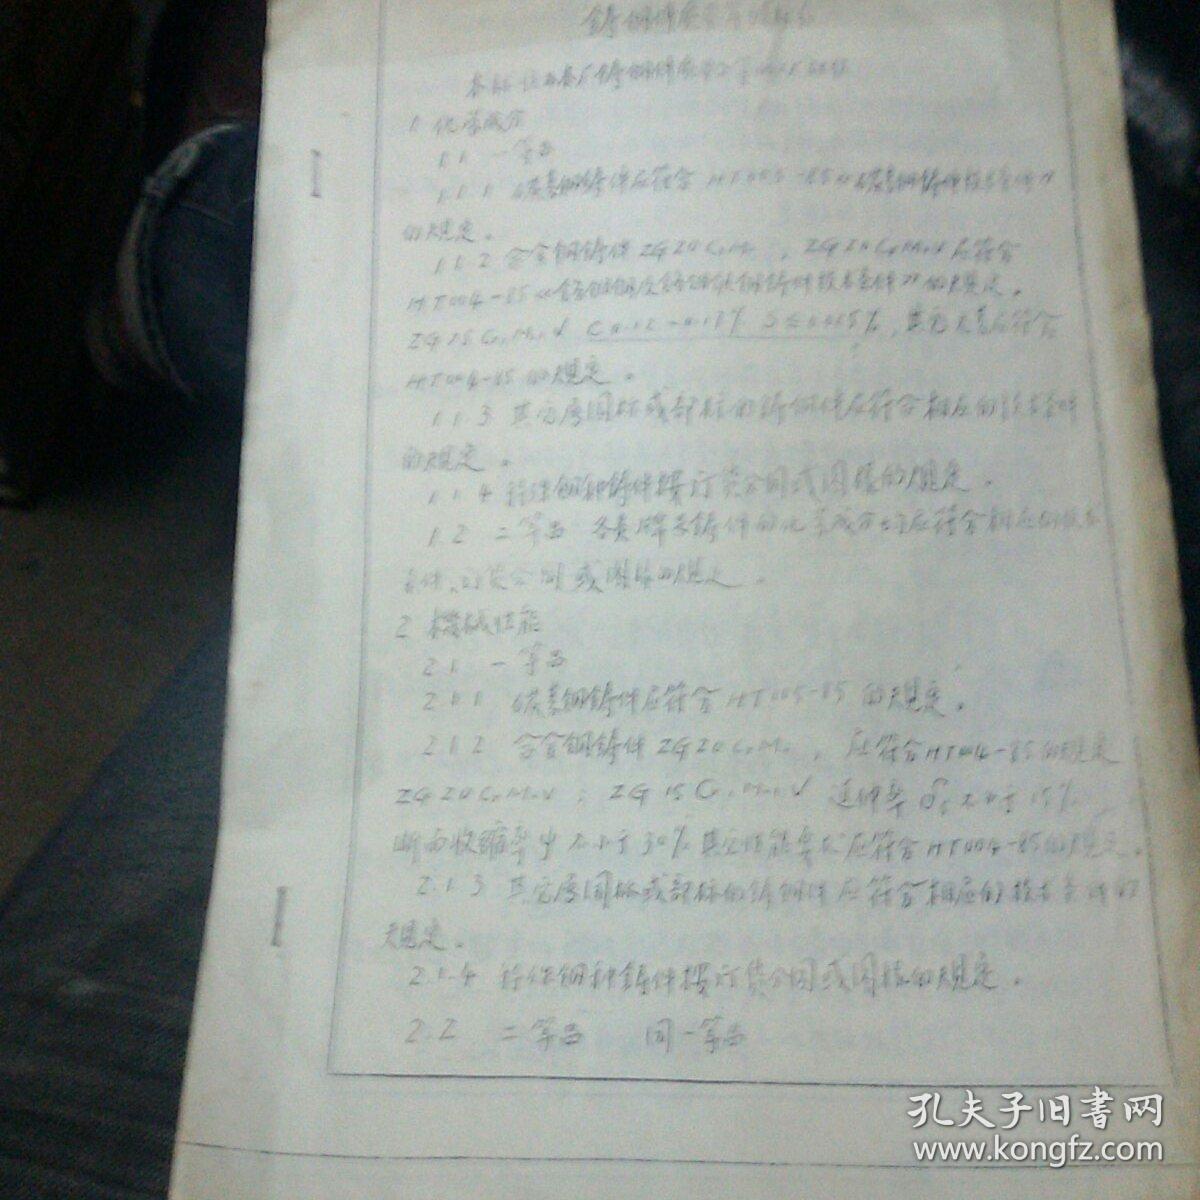 铸钢件
1 化学成分
1.1 一等品
1.1.1 碳素钢铸件应符合 HT005-85《碳素钢铸件技术条件》
的规定。
1.1.2 合金钢铸件 ZG20CrMo , ZG20CrMoV 应符合
HT004-85 铸件技术条件》的规定。
ZG15CrMoV S≤0.025%, 其它元素应符合
HT004-85 的规定。
1.1.3 其它属国标或部标的铸钢件应符合相应的技术条件
的规定。
1.1.4 特殊钢种铸件按订货合同或图样的规定。
1.2 二等品 各类牌号铸件的化学成分均应符合相应的技术
条件、订货合同或图样的规定。
2 机械性能
2.1 一等品
2.1.1 碳素钢铸件应符合 HT005-85 的规定。
2.1.2 合金钢铸件 ZG20CrMo , 应符合 HT004-85 的规定
ZG20CrMoV ; ZG15CrMoV 延伸率 δ5 不小于 15%
断面收缩率ψ不小于30% 其它性能要求应符合 HT004-85 的规定。
2.1.3 其它属国标或部标的铸钢件应符合相应的技术条件的
规定。
2.1.4 特殊钢种铸件按订货合同或图样的规定。
2.2 二等品 同一等品
孔夫子旧书网
www.kongfz.com